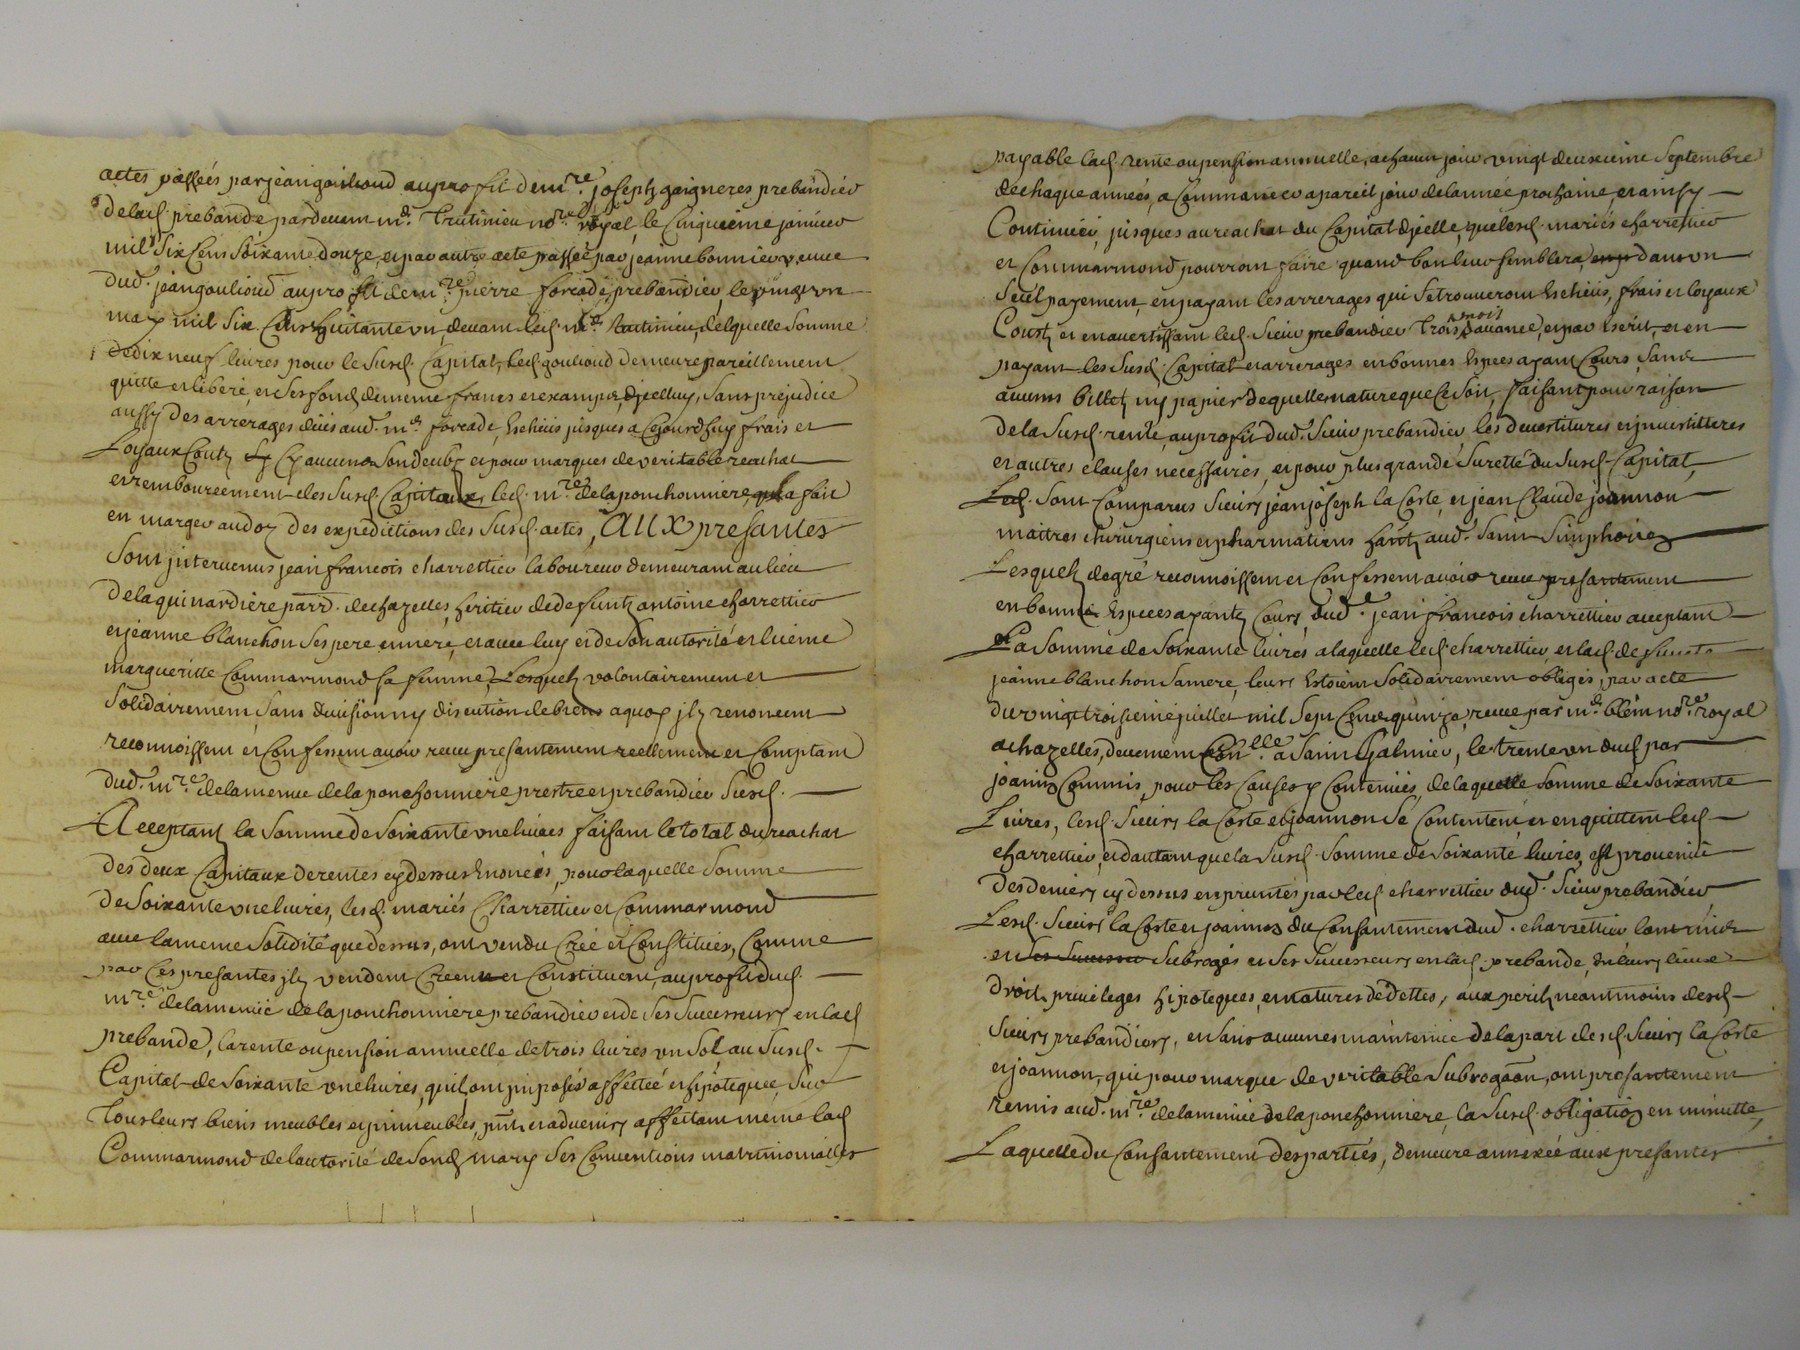 actes passées par jean goulioud au profit de m.re joseph gaigneres prebandier
de lad. prebande pardevant m.e trutinieu no.re royal, le cinquieme janvier
mil six cens soixante douze, et par autre acte passée par jeanne bonnier veuve
dud. jean goulioud au profit de m.re pierre forcade, prebandier, le vingt un
may mil six cens huitante un, devant led. m.e trutinieu, de laquelle somme
de dix neuf livres pour le susd. capital, led. goulioud demeure pareillement
quitte et liberé, et ses fonds de meme francs et exampts, d'jcelluy, sans prejudice
aussy des arrerages dües aud. m.e forcade, Escheüs jusques a cejourd'huy frais et
Loyaux Couts sy aucuns sont deubs et pour marques de veritable reachat
et rembourcement des susd. Capitaux, led. m.re de la ponchonniere, a fait
en marger au doz des expedictions des susd. actes, AUX presantes
Sont jntervenus jean francois charrettier laboureur demeurant au lieu
de la quinardiere parr. de chazelles, heritier de defunts antoine charrettier
et jeanne blanchon ses pere et mere, et avec luy et de son autorité et licence
margueritte Commarmond sa femme, Lesquels volontairement et
Solidairement, sans division ny discution de biens a quoy jls renoncent
reconnoissent et Confessent avoir receu presantement reellement et Comptant
dud. m.re delamenue de la ponchonniere prestre et prebandier susd.
Acceptant la somme de soixante une livres faisant le total du reachat
des deux Capitaux de rentes cy dessus Enoncés, pour laquelle somme
de soixante une livres, lesd. mariés Charrettier et Commarmond
avec la meme solidité que dessus, ont vendu créé et Constitués, Comme
par ces presantes jls vendent créent et Constituent, au profit dud.
m.re delamenüe de la ponchonniere prebandier et de ses successeurs en lad.
prebande, la rente ou pension annuelle de trois livres un sol au susd.
Capital de soixante une livres, qu'ils ont jmposée affectée et hipotequée sur
tous leurs biens meubles et jmmeubles, pnts et advenirs affectant meme lad.
Commarmond de l'autorité de sond. mary ses Conventions matrimonialles
payable lad. rente ou pension annuelle, a chacun jour vingt deuxieme septembre
de chaque années, a Commancer a pareil jour de l'année prochaine, et ainsy
Continüer, jusques au reachat du Capital d'jcelle, que lesd. mariés charrettier
et Commarmond pourront faire quand bon leur semblera, dans un
seul payement, en payant les arrerages qui se trouveront Escheüs, frais et loyaux
Cousts et en avertissant led. sieur prebandier trois mois d'avance, et par Escrit, et en
payant les susd. Capital et arrerages en bonnes Especes ayant Cours, sans
aucuns billets ny papiers de quelle nature que ce soit, faisant pour raison
de la susd. rente, au profit dud. sieur prebandier, les devestitures et jnvestitures
et autres clauses necessaires, et pour plus grande suretté du susd. Capital,
Sont Comparus sieurs jean joseph la Coste, et jean Claude joannon
maitres chirurgiens et pharmatiens hants aud. Saint Simphorien
Lesquels de gré reconnoissent et Confessent avoir receu presantement
en bonne Especes ayants Cours, dud. jean francois charrettier acceptant
La somme de soixante livres a laquelle led. charrettier, et lad. defunte
jeanne blanchon sa mere, leurs Estoient solidairement obligés, par acte
du vingt troisieme juillet mil sept cens quinze, receu par m.e blein no.re royal
a chazelles, deuement Con.lle a Saint Galmier, le trente un dud. par
joannin Commis, pour les Causes y Contenües, de laquelle somme de soixante
Livres, lesd. sieurs la Coste et joannon se Contentent et en quittent led.
charrettier, et d'autant que la susd. somme de soixante livres, est provenüe
des deniers cy dessus empruntés par led. charrettier dud. sieur prebandier
Lesd. sieurs la Coste et joannon du Consantement dud. charrettier l'ont mis
et subrogés et ses successeurs en lad. prebande, en leurs lieux
droits, privileges hipoteques, et natures de dettes, aux perils neantmoins desd.
sieurs prebandiers, et sans aucunes maintenüe de la part desd. sieurs la Coste
et joannon, qui pour marque de veritable subrogãon, ont presantement
remis aud. m.re delamenüe de la ponchonniere, la susd. obligation en minutte,
Laquelle du Consantement des parties, demeure annexée aux presantes